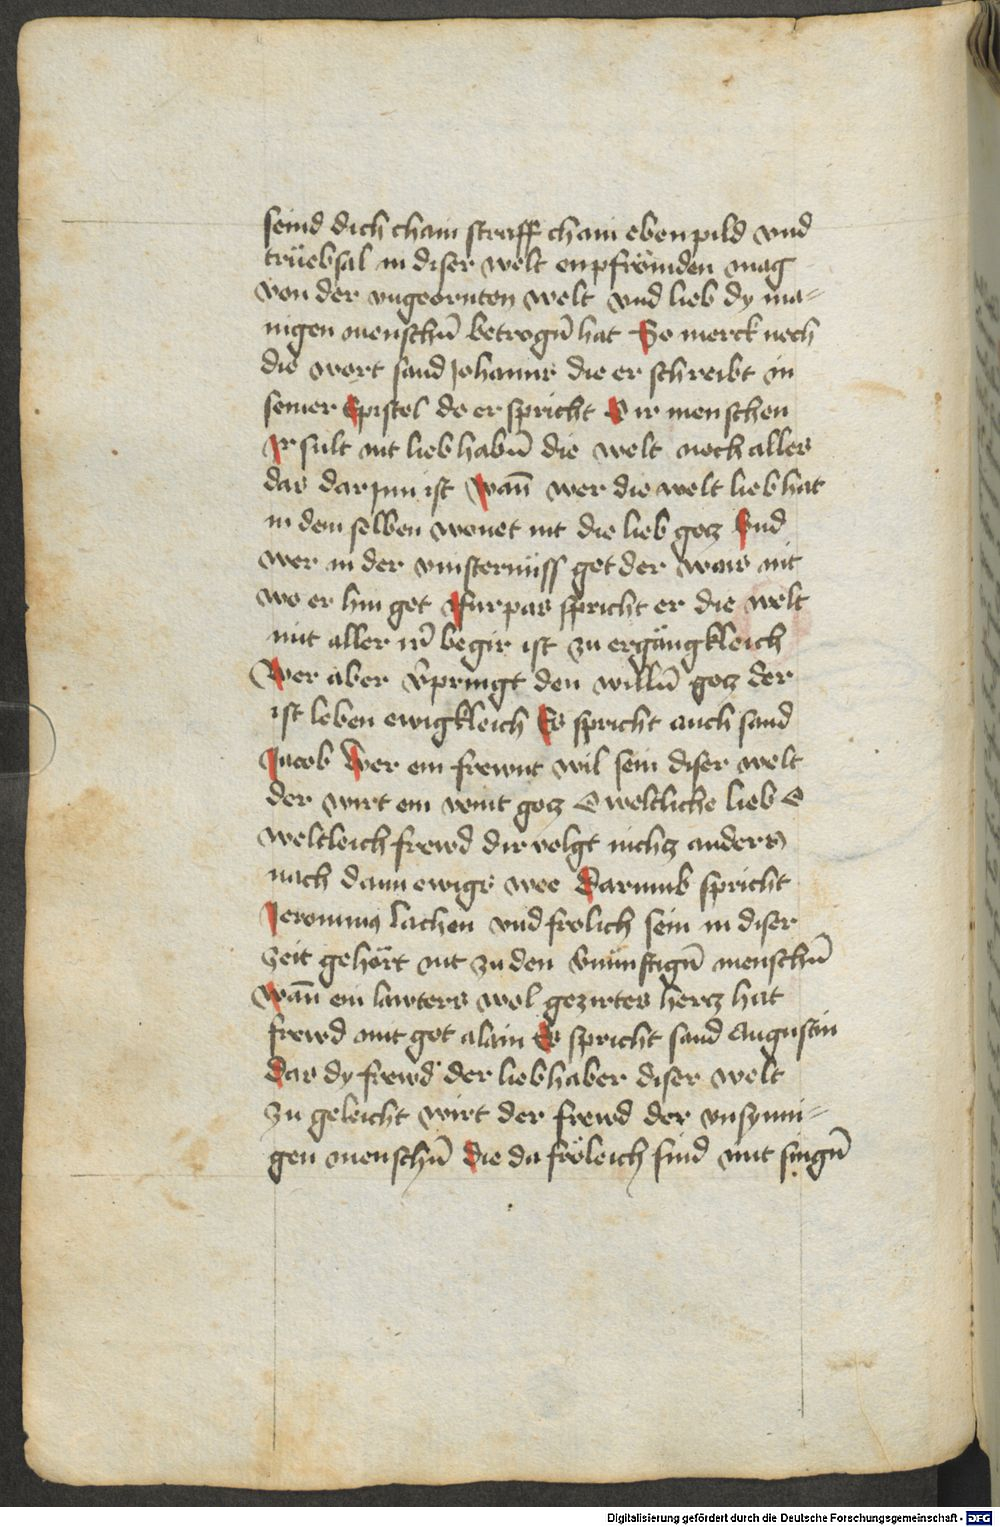 seind dich chain straff chain ebenpild vnd
trüebsal in diser welt enpfrömden mag
von der vngeornten welt vnd lieb dy ma-
nigen menschn̄ betrogn̄ hat So merck noch
die wort sand Johanns die er schreibt in
seiner Epistel do er spricht O ir menschen
Ir sult nit lieb habn̄ die welt noch alles
das darjnn ist Wan̄ wer die welt lieb hat
in dem selben wonet nit die lieb gocz Vnd
wer in der vinsternüss get der wais nit
wo er hin get Furpas spricht er die welt
mit aller ir̄ begir ist zu ergängkleich
Wer aber v̄pringt den willn̄ gocz der
ist leben ewigkleich Es spricht auch sand
Jacob Wer ein frewnt wil sein diser welt
der wirt ein veint gocz O weltliche lieb O
weltleich frewd dir volgt nichcz anders
nach dann ewigs wee Darumb spricht
Jeronimus lachen vnd frolich sein in diser
zeit gehört nit zu den v̄nünftign̄ menschn̄
Wan̄ ein lawters wol gezirtes hercz hat
frewd mit got alain Es spricht sand Augustin
Das dy frewd der liebhaber diser welt
zu geleicht wirt der frewd der vnsynni-
gen menschn̄ Die da fröleich sind mit singn̄
Digitalisierung gefördert durch die Deutsche Forschungsgemeinschaft - DFG